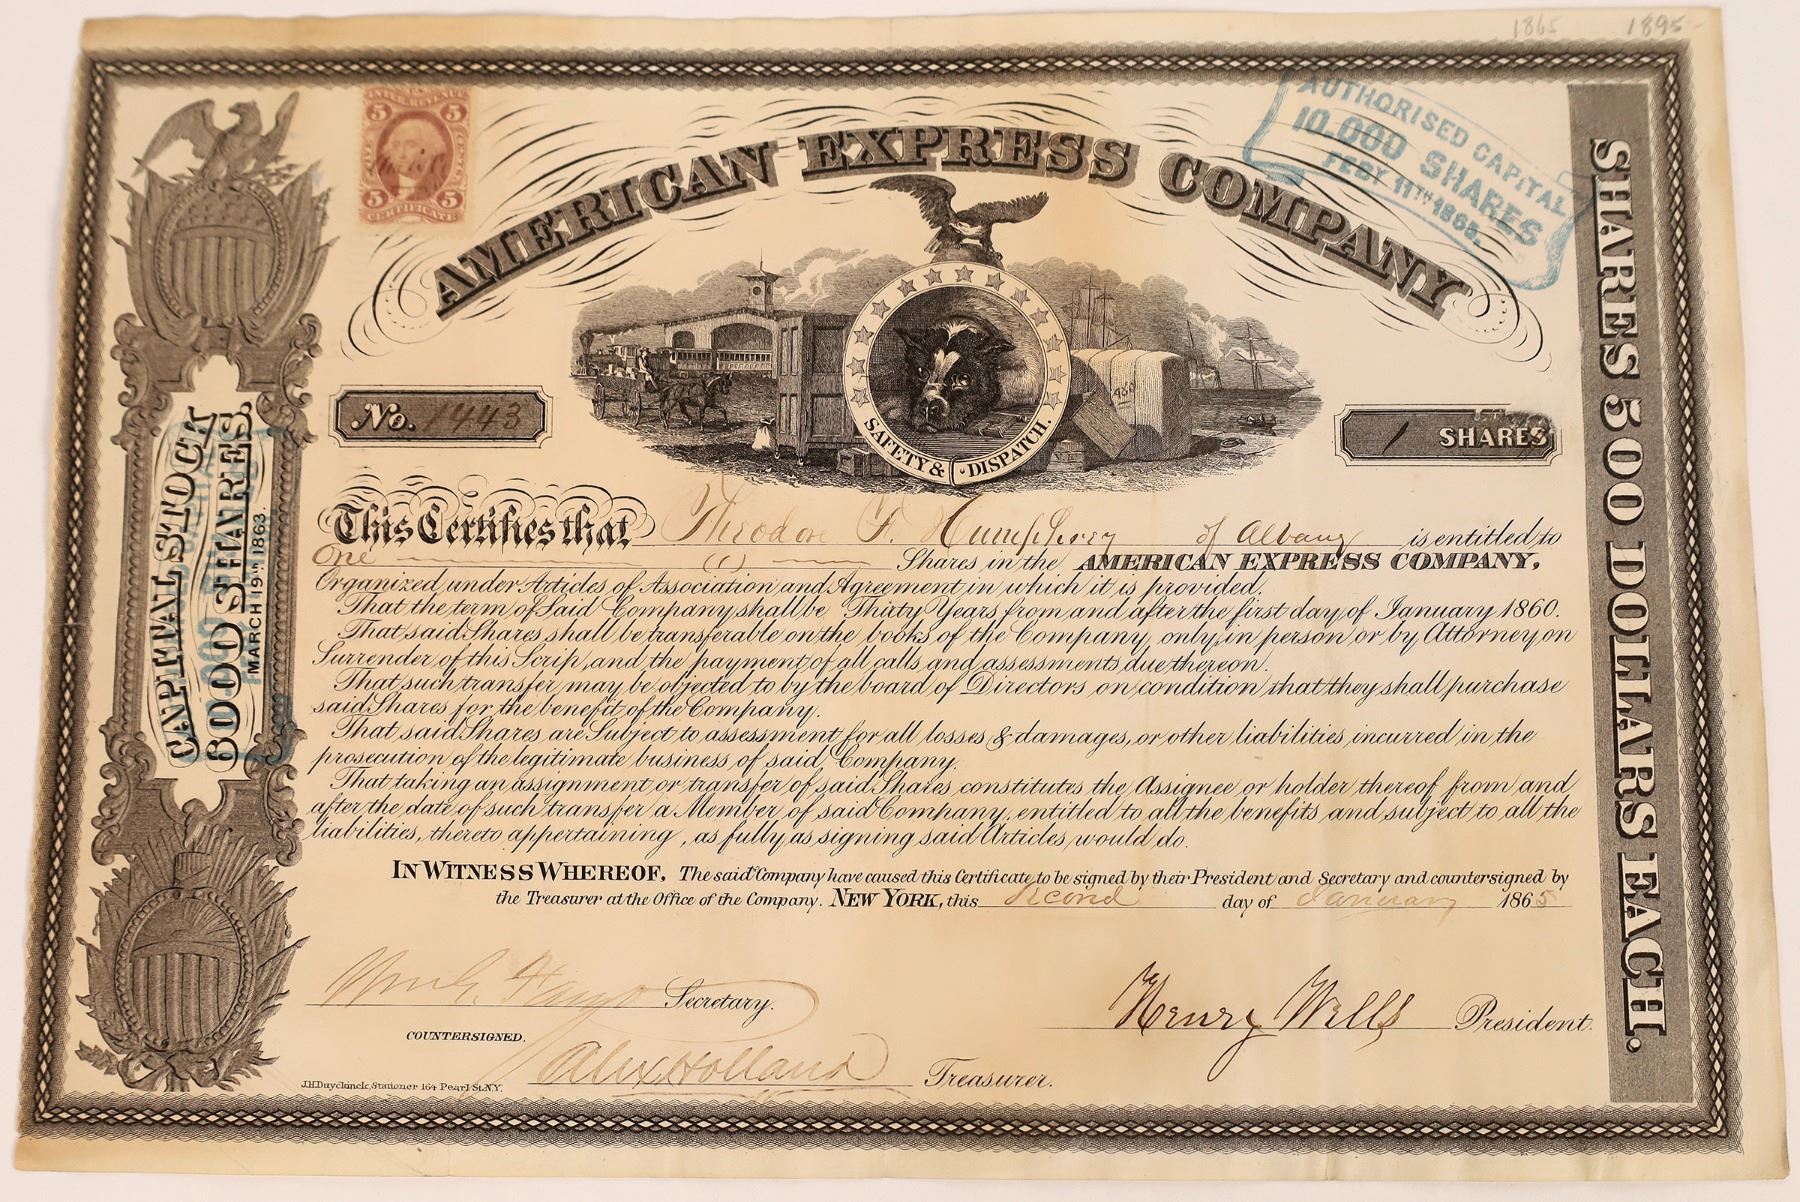 1865 1895-
INTER. REVENUE
5 5
5 5
CERTIFICATE
AUTHORISED CAPITAL
10.000 SHARES
FEBY 11TH 1865.
AMERICAN EXPRESS COMPANY
SAFETY & DISPATCH.
No. 1443
1 SHARES
This Certifies that Theodore F. Humphrey of Albany is entitled to
One (1) Shares in the AMERICAN EXPRESS COMPANY,
Organized under Articles of Association and Agreement in which it is provided.
That the term of Said Company shall be Thirty Years from and after the first day of January 1860.
That said Shares shall be transferable on the books of the Company, only, in person or by Attorney on
Surrender of this Scrip, and the payment of all calls and assessments due thereon.
That such transfer may be objected to by the board of Directors on condition that they shall purchase
said Shares for the benefit of the Company.
That said Shares are Subject to assessment for all losses & damages, or other liabilities incurred in the
prosecution of the legitimate business of said Company.
That taking an assignment or transfer of said Shares constitutes the Assignee or holder thereof from and
after the date of such transfer a Member of said Company, entitled to all the benefits and subject to all the
liabilities, thereto appertaining, as fully as signing said Articles would do.
IN WITNESS WHEREOF, The said Company have caused this Certificate to be signed by their President and Secretary and countersigned by
the Treasurer at the Office of the Company. NEW YORK, this Second day of January 1865
Wm G. Fargo Secretary.
Henry Wells President.
COUNTERSIGNED.
Alex Holland Treasurer.
J.H. Duyckinck, Stationer 164 Pearl St. N.Y.
CAPITAL STOCK
8000 SHARES.
MARCH 19TH 1863.
SHARES 500 DOLLARS EACH.